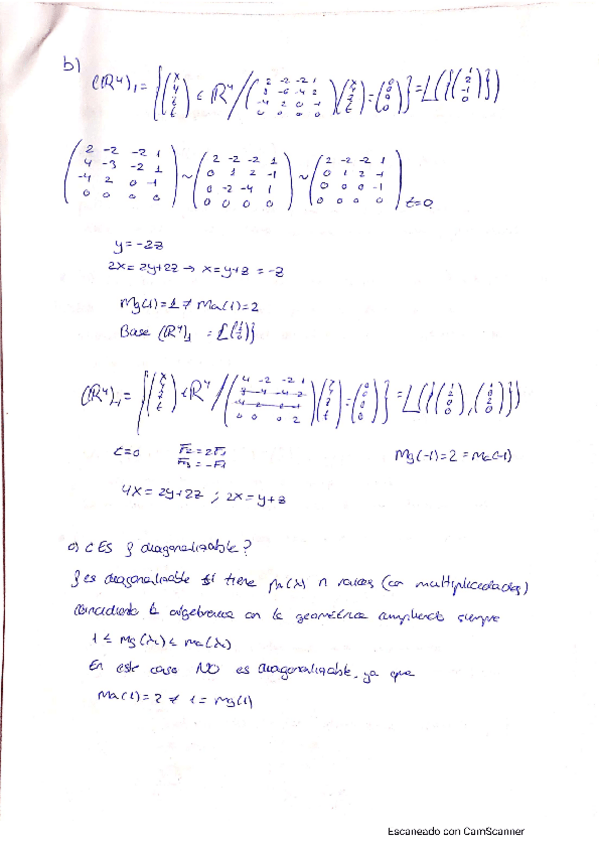 b)
(ℝ⁴)₁ = { (x y z t) ∈ ℝ⁴ / (2 -2 -2 1 -4 2 0 -1 0 0 0 0) (x y z t) = (0 0 0 0) } = L({(1 2 -1 0)})
(2 -2 -2 1 / 4 -3 -2 1 / -4 2 0 -1 / 0 0 0 0) ~ (2 -2 -2 1 / 0 1 2 -1 / 0 -2 -4 1 / 0 0 0 0) ~ (2 -2 -2 1 / 0 1 2 -1 / 0 0 0 -1 / 0 0 0 0) t=0
y = -2z
2x = 2y+2z → x = y+z = -z
Mg(1) = 1 ≠ Ma(1) = 2
Base (ℝ⁴)₁ =
(ℝ⁴)₋₁ = { (x y z t) ∈ ℝ⁴ / (4 -2 -2 1 0 0 0 2) (x y z t) = (0 0 0 0) } = L
t=0 F₂ = 2F₁
F₃ = -F₁ Mg(-1) = 2 = Ma(-1)
4x = 2y+2z ; 2x = y+z
c) ¿ES f diagonalizable?
f es diagonalizable si tiene n raíces (con multiplicidades)
coincidiendo la algebraica con la geométrica cumpliendo siempre
1 ≤ Mg(λ) ≤ Ma(λ)
En este caso NO es diagonalizable, ya que
Ma(1) = 2 ≠ 1 = Mg(1)
Escaneado con CamScanner